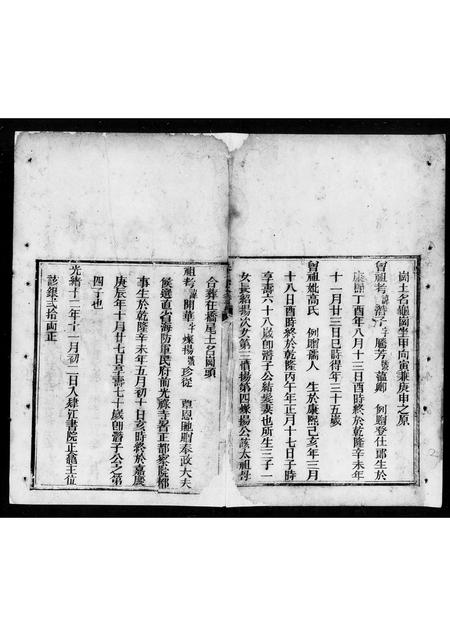 崗土名龜崗坐甲向寅兼庚申之原
曾祖考諱潛子字騰芳號蘊鄉 例贈登仕郎生於
康熙丁酉年八月十三日酉時終於乾隆辛未年
十一月廿三日巳時得年三十五歲
曾祖妣高氏 例贈孺人 生於康熙己亥年三月
十八日酉時終於乾隆丙午年正月十七日子時
享壽六十八歲卽潛子公結髮妻也所生三子一
女長紹揚次女第三纘揚第四燦揚公該太祖母
合葬在橋尾土名園頭
祖考諱開華字燦揚號珍從 覃恩貤贈奉政大夫
候選直省海防軍民府前光祿寺署正都察院都
事生於乾隆辛未年五月初十日亥時終於嘉慶
庚辰年十月廿七日享壽七十歲卽潛子公之第
四子也
光緒十二年十二月初二日入肄江書院正龕主位
該銀弍拾兩正